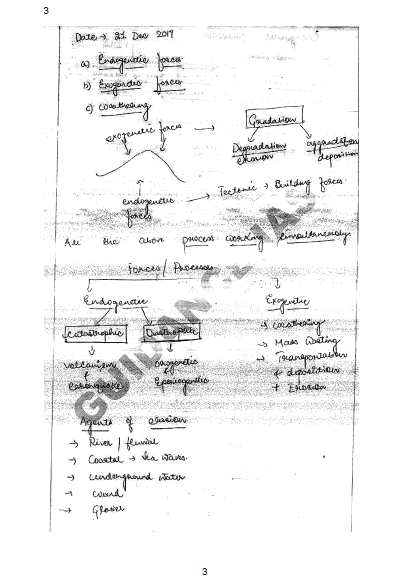 3
Date → 21 Dec 2017
a) Endogenetic forces
b) Exogenetic forces
c) Weathering
exogenetic forces → Gradation
Degradation erosion
aggradation deposition
endogenetic forces → Tectonic → Building forces
All the above process working simultaneously.
Forces / Processes
Endogenetic
Exogenetic
Catastrophic
Diastrophic
→ Weathering
→ Mass Wasting
volcanism & Earthquake
orogenetic & Epeirogenetic
→ Transportation
+ deposition
+ Erosion
Agents of erosion
→ River / fluvial
→ Coastal → Sea waves.
→ underground water
→ Wind
→ Glacier
GUIDANCE IAS
3